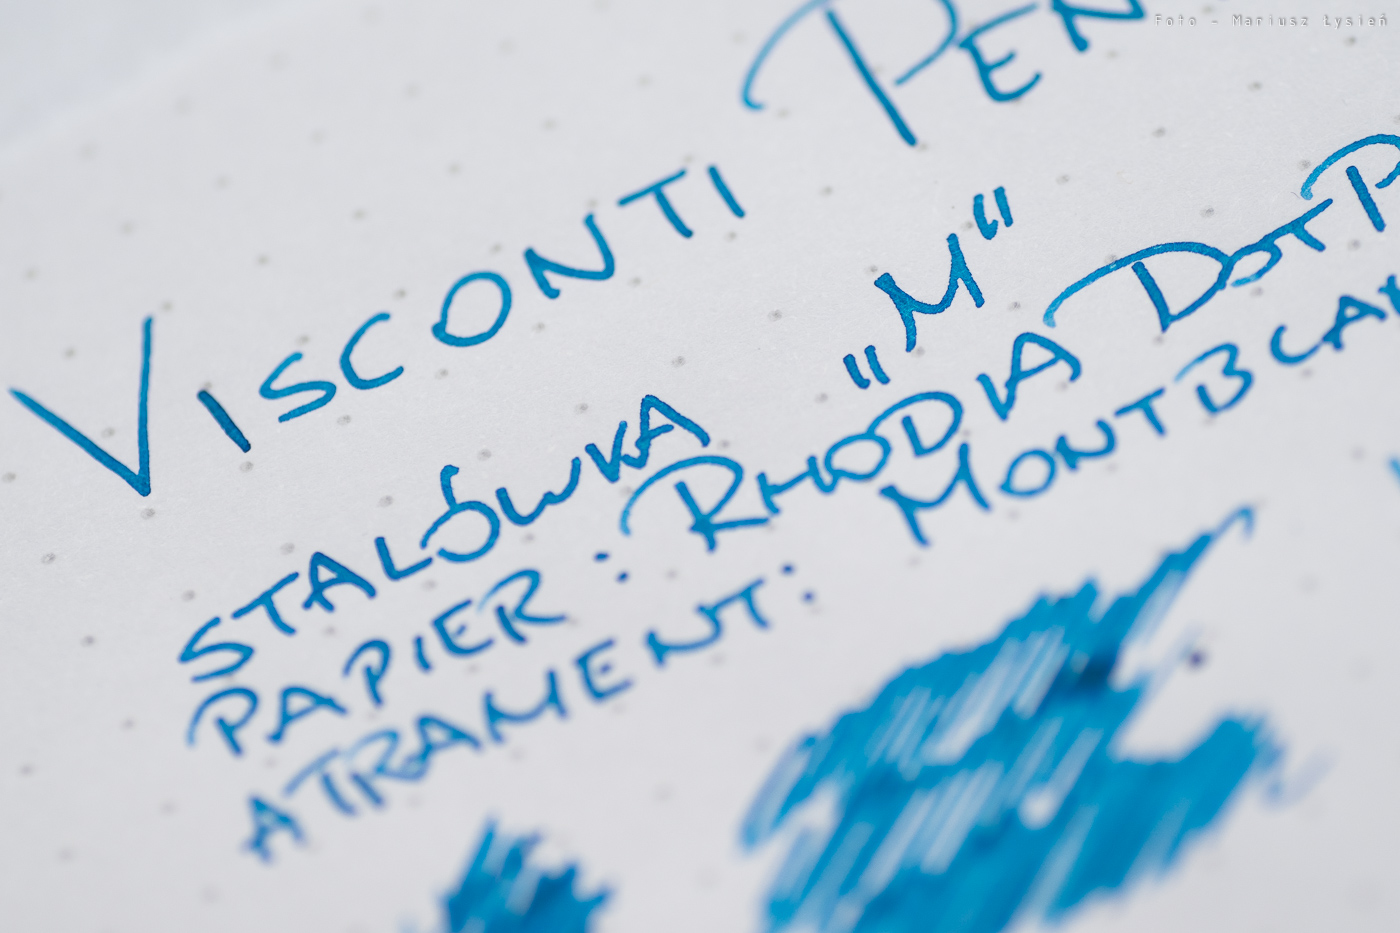 Foto - Mariusz Łysień
VISCONTI PEN
STALÓWKA „M“
PAPIER: RHODIA DOTP
ATRAMENT: MONTBLAN